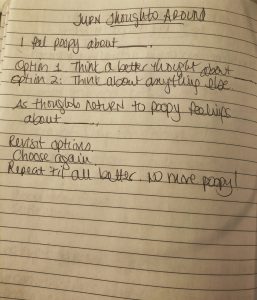 Turn Thoughts Around
I feel poopy about ____.
Option 1: Think a better thought about
Option 2: Think about anything else
As thoughts RETURN to poopy feelings
about ____,
Revisit options.
Choose again.
Repeat til all better. NO more poopy!